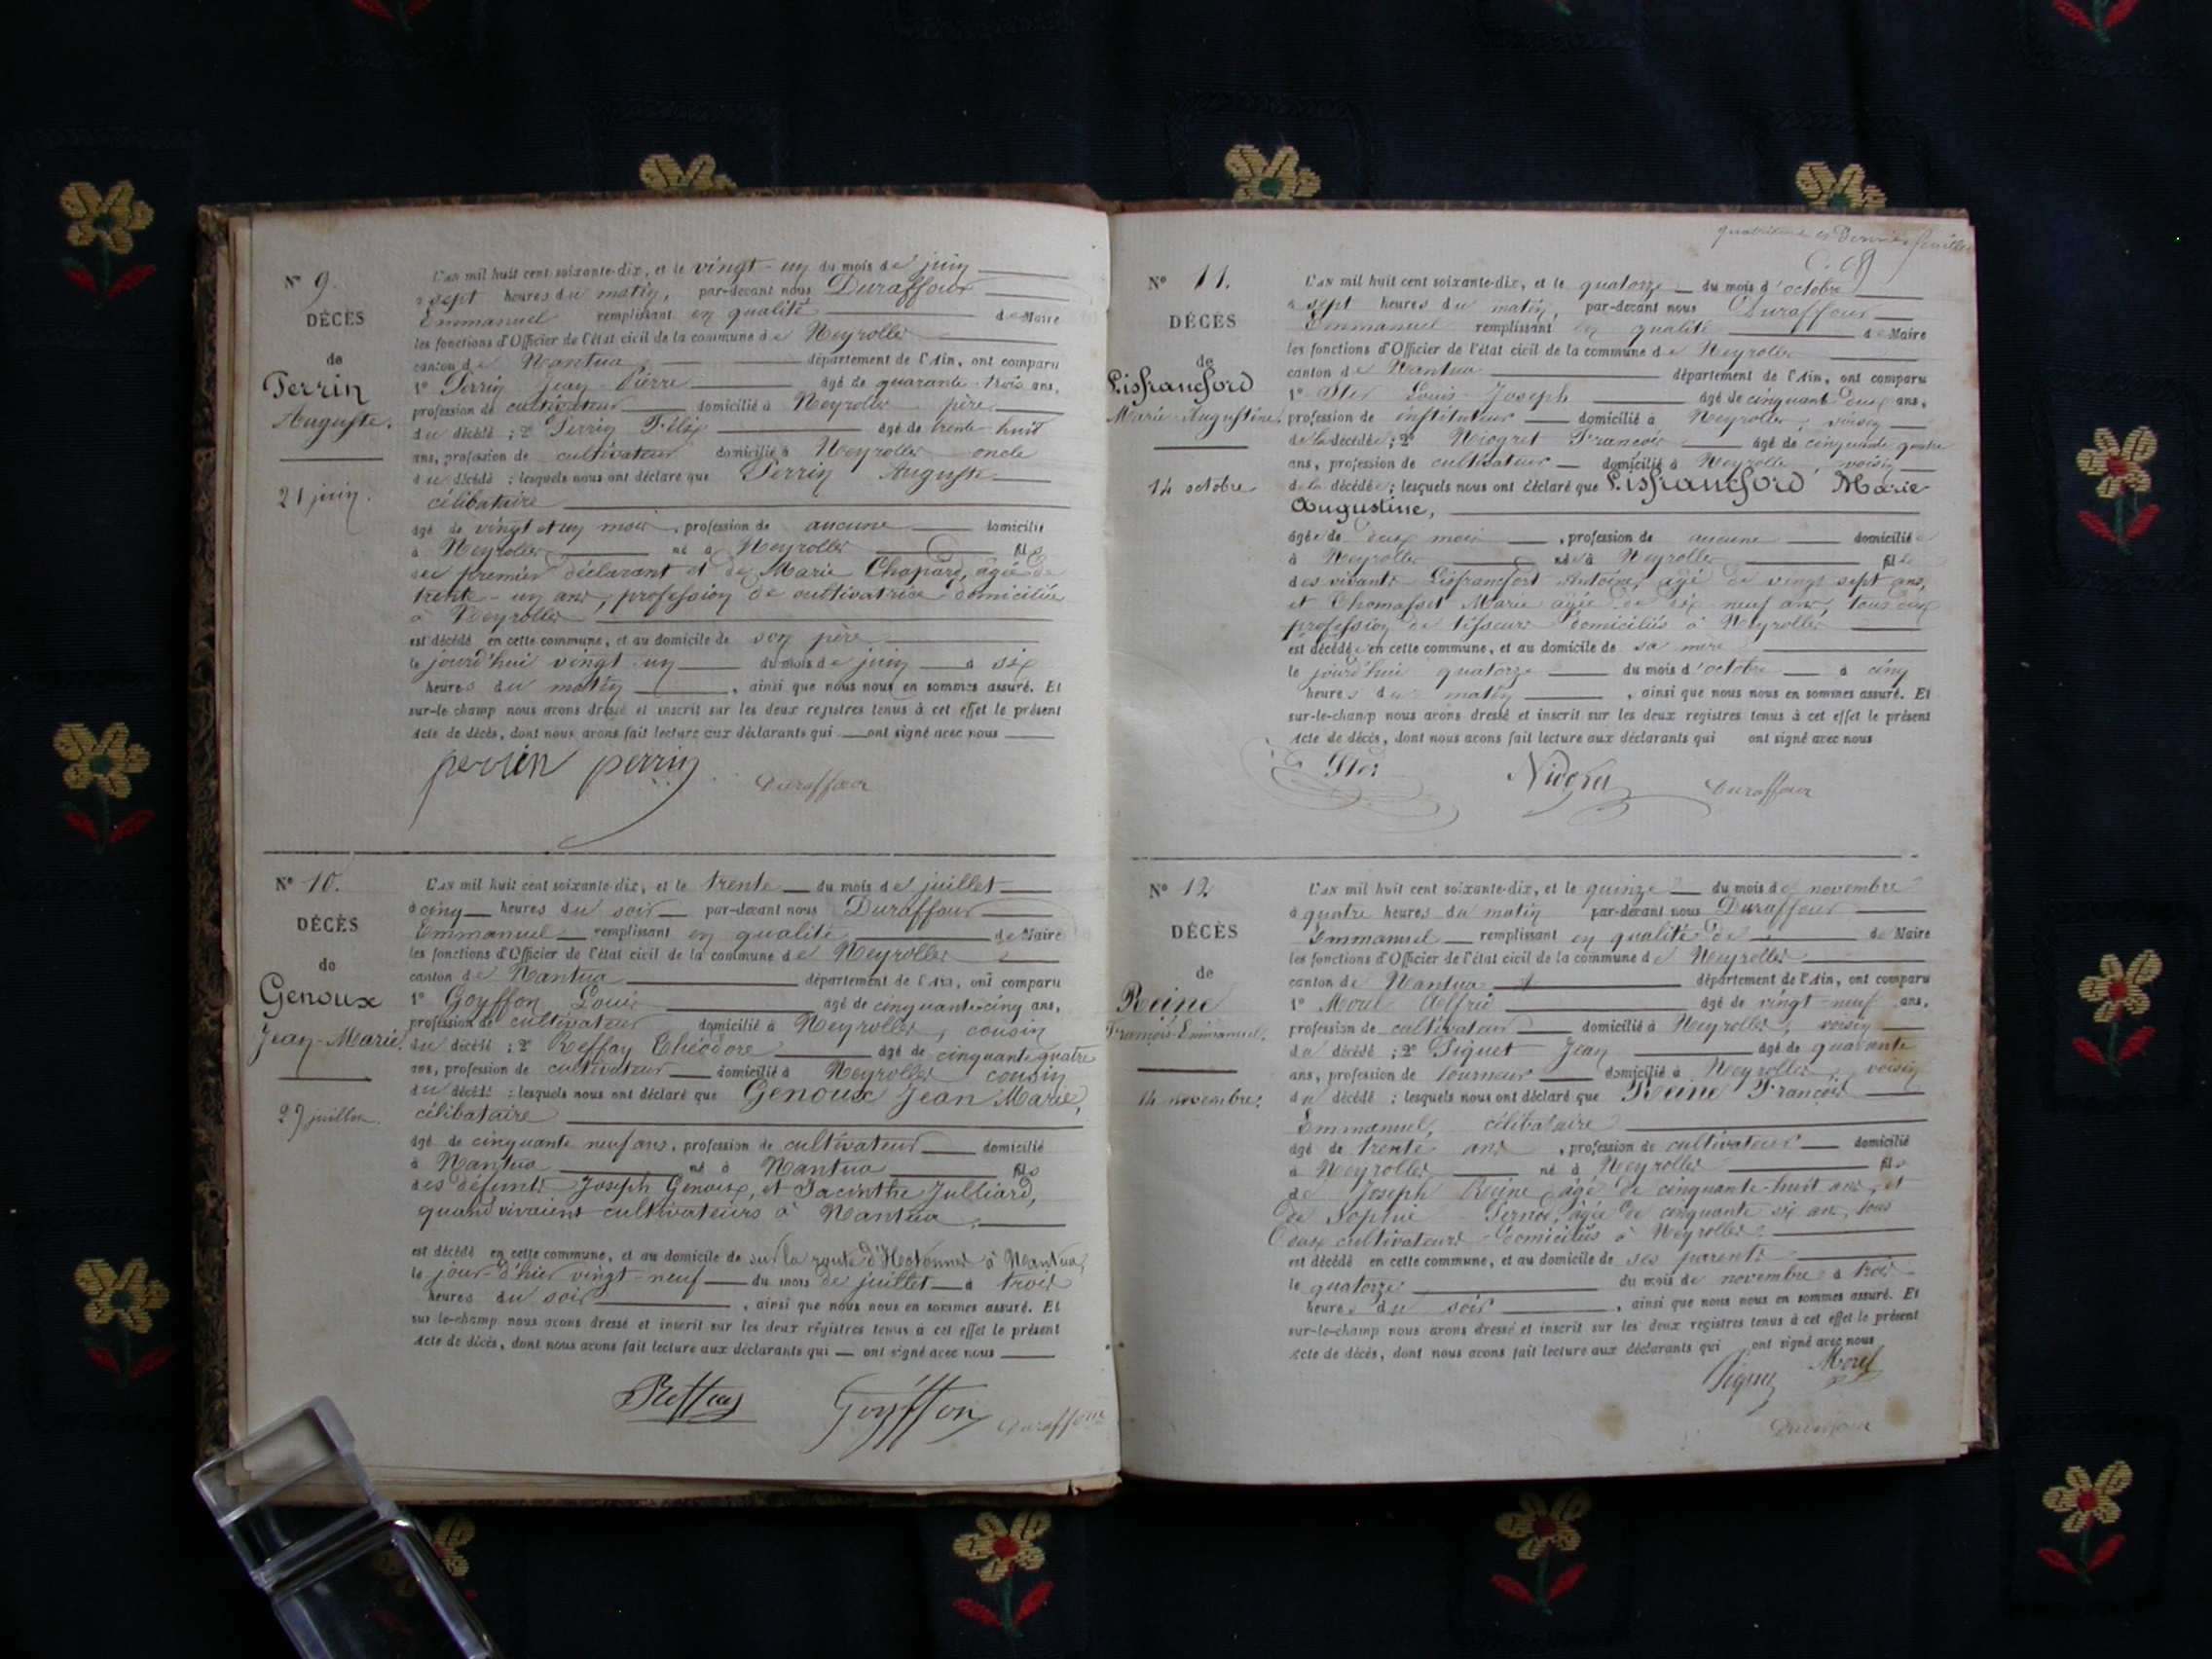 N° 9.
DÉCÈS
de
Perrin
Auguste.
21 juin.
L'an mil huit cent soixante-dix, et le vingt-un du mois de juin
à sept heures du matin, par-devant nous Duraffour
Emmanuel remplissant en qualité de Maire
les fonctions d'Officier de l'état civil de la commune de Neyrolles
canton de Nantua département de l'Ain, ont comparu
1° Perrin Jean Pierre âgé de quarante-trois ans,
profession de cultivateur domicilié à Neyrolles père
du décédé ; 2° Perrin Félix âgé de trente-huit
ans, profession de cultivateur domicilié à Neyrolles oncle
du décédé : lesquels nous ont déclaré que Perrin Auguste
célibataire
âgé de vingt et un mois, profession de aucune domicilié
à Neyrolles né à Neyrolles fils
du premier déclarant et de Marie Chapard, âgée de
trente-un ans, profession de cultivatrice domiciliée
à Neyrolles
est décédé en cette commune, et au domicile de son père
le jourd'hui vingt-un du mois de juin à six
heures du matin, ainsi que nous nous en sommes assuré. Et
sur-le-champ nous avons dressé et inscrit sur les deux registres tenus à cet effet le présent
Acte de décès, dont nous avons fait lecture aux déclarants qui ont signé avec nous
perrin perrin Duraffour
N° 10.
DÉCÈS
de
Genoux
Jean-Marie.
29 juillet.
L'an mil huit cent soixante-dix, et le trente du mois de juillet
à cinq heures du soir par-devant nous Duraffour
Emmanuel remplissant en qualité de Maire
les fonctions d'Officier de l'état civil de la commune de Neyrolles
canton de Nantua département de l'Ain, ont comparu
1° Goyffon Louis âgé de cinquante-cinq ans,
profession de cultivateur domicilié à Neyrolles, cousin
du décédé ; 2° Reffay Théodore âgé de cinquante quatre
ans, profession de cultivateur domicilié à Neyrolles cousin
du décédé : lesquels nous ont déclaré que Genoux Jean Marie,
célibataire
âgé de cinquante neuf ans, profession de cultivateur domicilié
à Nantua né à Nantua fils
des défunts Joseph Genoux, et Jacinthe Julliard,
quand vivaient cultivateurs à Nantua.
est décédé en cette commune, et au domicile de sur la route d'Hotonnes à Nantua,
le jour d'hier vingt-neuf du mois de juillet à trois
heures du soir, ainsi que nous nous en sommes assuré. Et
sur-le-champ nous avons dressé et inscrit sur les deux régistres tenus à cet effet le présent
Acte de décès, dont nous avons fait lecture aux déclarants qui ont signé avec nous
Reffay Goyffon Duraffour
quatrième et dernier feuillet
N° 11.
DÉCÈS
de
Lisfrancford
Marie-Augustine.
14 octobre
L'an mil huit cent soixante-dix, et le quatorze du mois d'octobre
à sept heures du matin, par-devant nous Duraffour
Emmanuel remplissant en qualité de Maire
les fonctions d'Officier de l'état civil de la commune de Neyrolles
canton de Nantua département de l'Ain, ont comparu
1° Ster Louis-Joseph âgé de cinquante deux ans,
profession de instituteur domicilié à Neyrolles, voisin
de la décédée ; 2° Niogret François âgé de cinquante quatre
ans, profession de cultivateur domicilié à Neyrolles, voisin
de la décédée : lesquels nous ont déclaré que Lisfrancford Marie
Augustine,
âgée de deux mois, profession de aucune domiciliée
à Neyrolles née à Neyrolles fille
des vivants Lisfrancfort Antoine, âgé de vingt sept ans,
et Thomasset Marie âgée de dix-neuf ans, tous deux
profession de tisseurs domiciliés à Neyrolles
est décédée en cette commune, et au domicile de sa mère
le jourd'hui quatorze du mois d'octobre à cinq
heures du matin, ainsi que nous nous en sommes assuré. Et
sur-le-champ nous avons dressé et inscrit sur les deux registres tenus à cet effet le présent
Acte de décès, dont nous avons fait lecture aux déclarants qui ont signé avec nous
Ster Niogret Duraffour
N° 12
DÉCÈS
de
Reine
François-Emmanuel.
14 novembre.
L'an mil huit cent soixante-dix, et le quinze du mois de novembre
à quatre heures du matin par-devant nous Duraffour
Emmanuel remplissant en qualité de de Maire
les fonctions d'Officier de l'état civil de la commune de Neyrolles
canton de Nantua département de l'Ain, ont comparu
1° Morel Alfrie âgé de vingt-neuf ans,
profession de cultivateur domicilié à Neyrolles, voisin
du décédé ; 2° Piquet Jean âgé de quarante
ans, profession de tourneur domicilié à Neyrolles, voisin
du décédé : lesquels nous ont déclaré que Reine François
Emmanuel, célibataire
âgé de trente ans, profession de cultivateur domicilié
à Neyrolles né à Neyrolles fils
de Joseph Reine âgé de cinquante-huit ans, et
de Sophie Pernod, âgée de cinquante six an, tous
deux cultivateurs domiciliés à Neyrolles
est décédé en cette commune, et au domicile de ses parents
le quatorze du mois de novembre à trois
heures du soir, ainsi que nous nous en sommes assuré. Et
sur-le-champ nous avons dressé et inscrit sur les deux registres tenus à cet effet le présent
Acte de décès, dont nous avons fait lecture aux déclarants qui ont signé avec nous
Piquet Morel
Duraffour